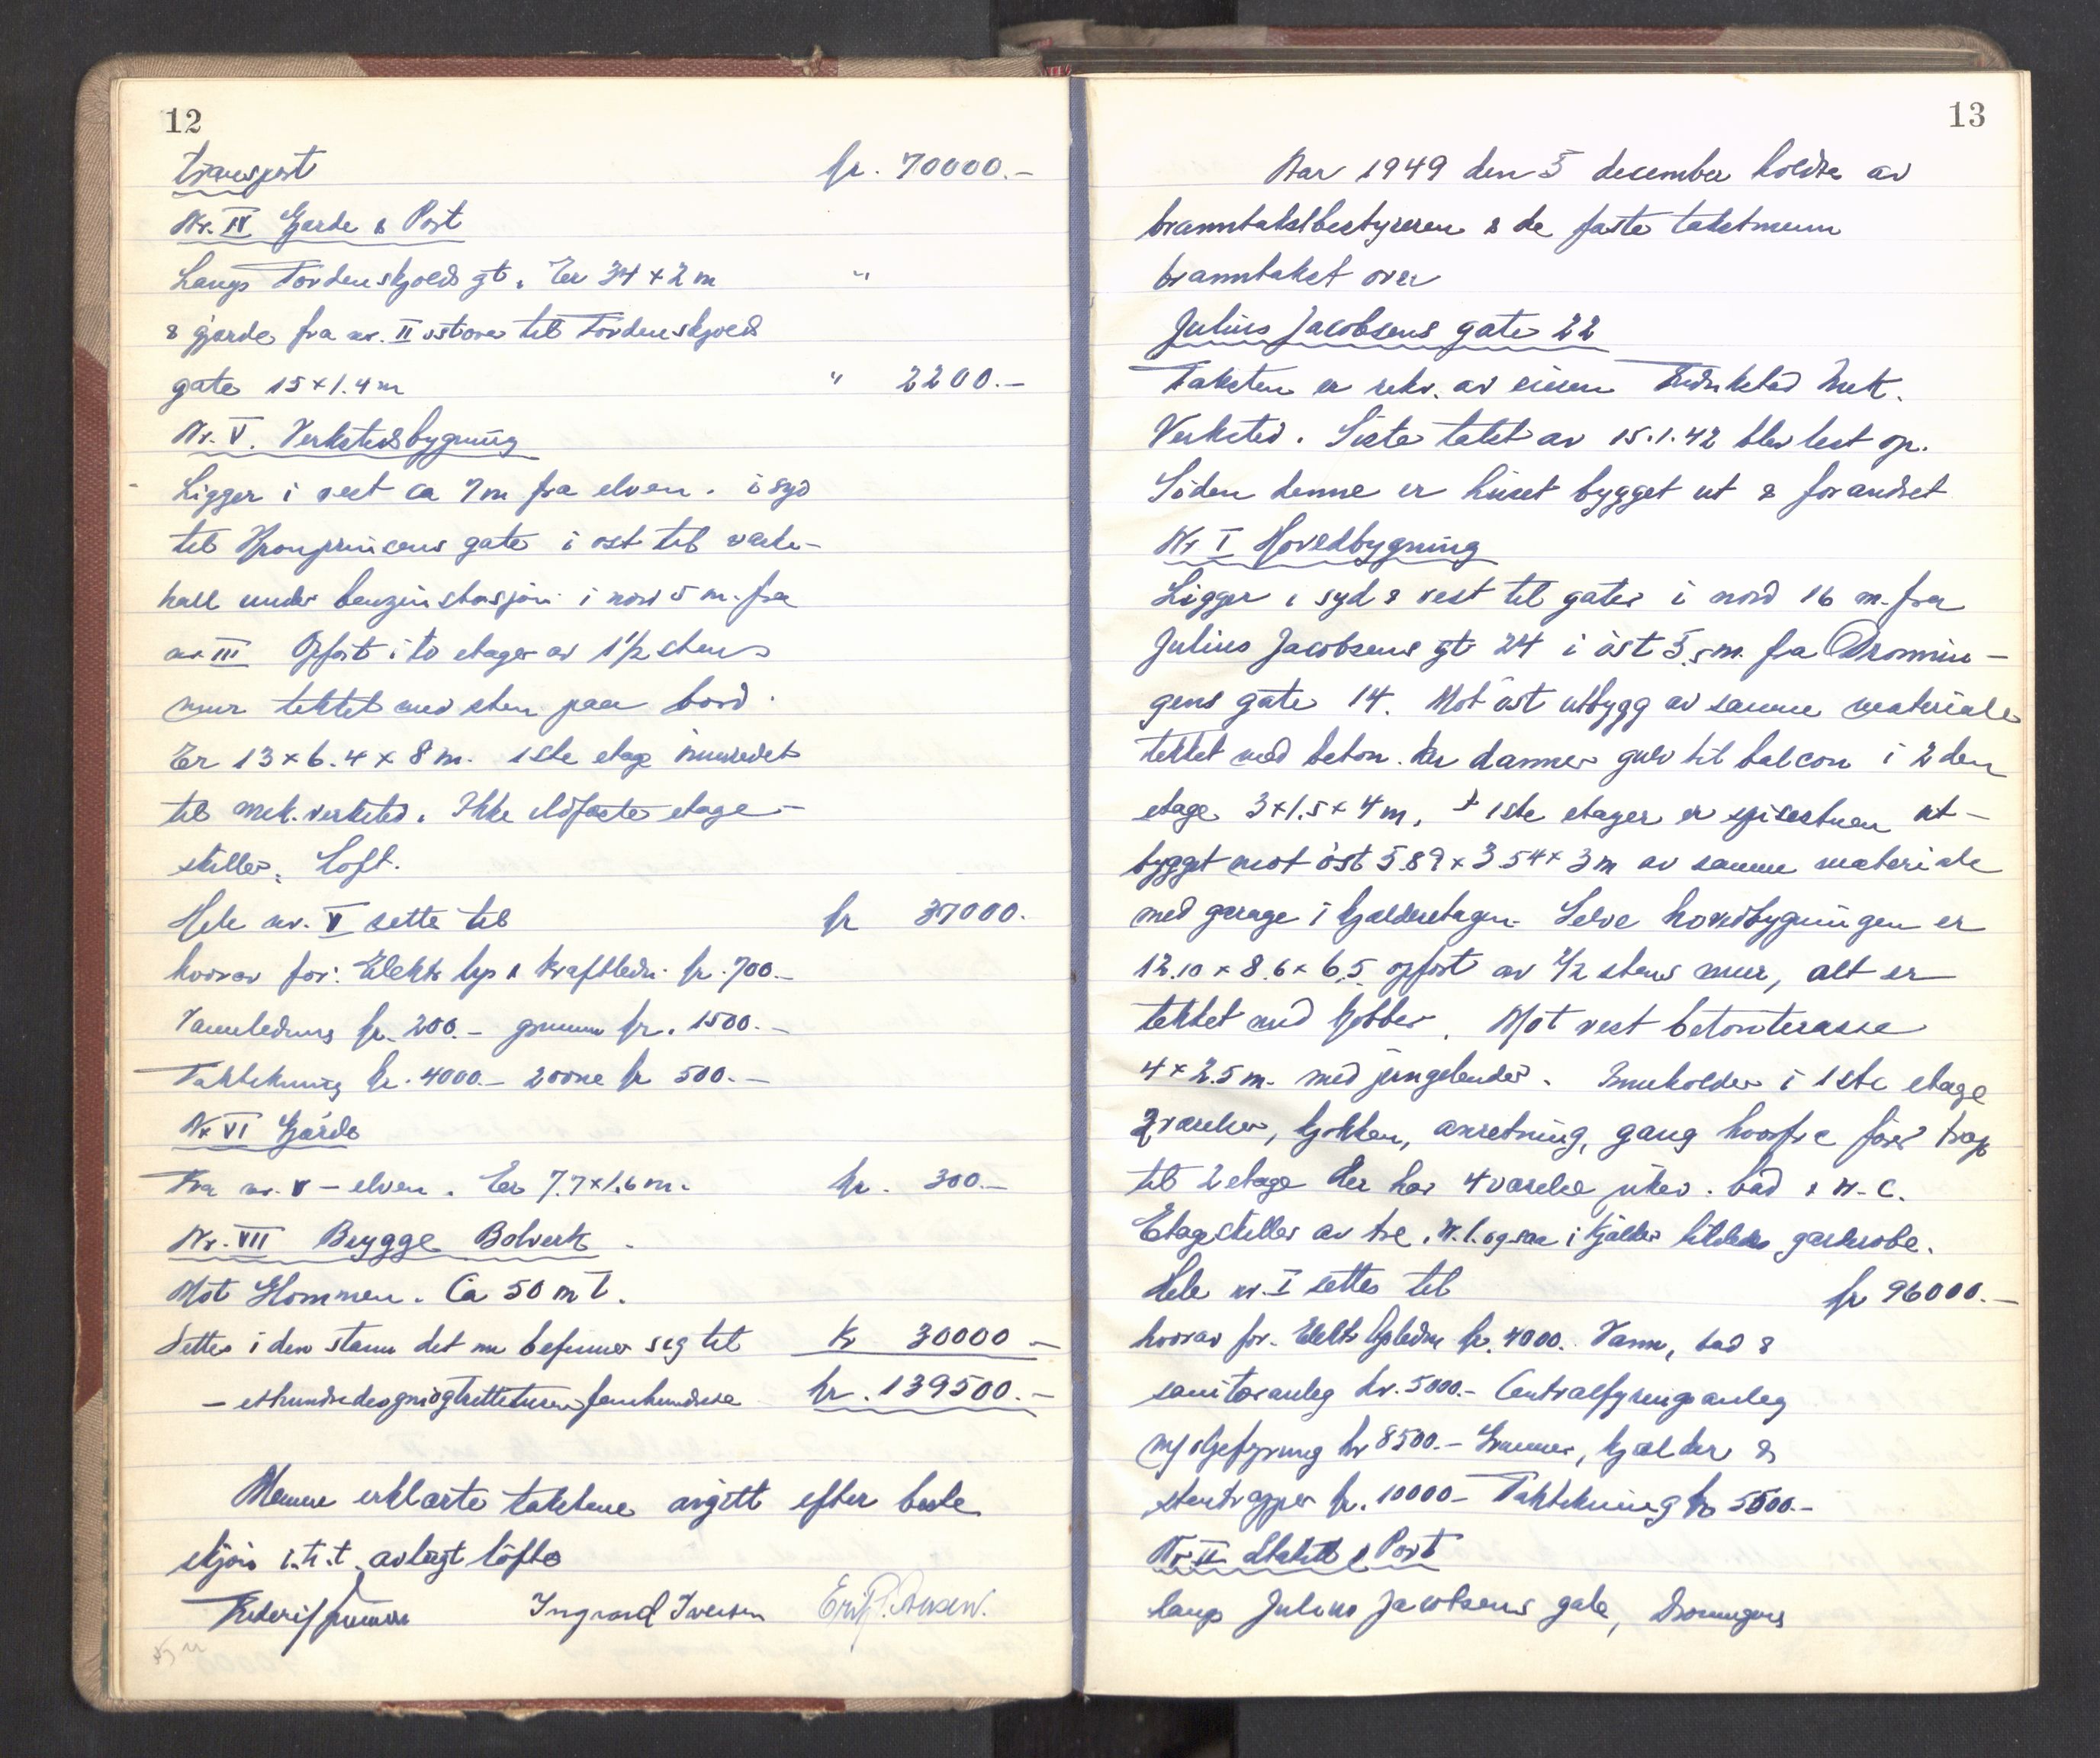 12
transport kr. 70000.-
Nr. IV Gjærde & Port
Langs Tordenskjolds gt. Er 34 x 2 m "
& gjærde fra nr. II østover til Tordenskjolds
gate 15 x 1.4 m " 2200.-
Nr. V. Verkstedsbygning
Ligger i vest ca 7 m fra elven. i syd
til Kronprincens gate i øst til vaske-
hall under benzinstasjon i nord 5 m. fra
nr III Opført i to etager av 1½ stens
mur tekket med sten paa bord.
Er 13 x 6.4 x 8 m. 1ste etage innredet
til mek. verksted. Ikke ildfaste etage-
skiller. Loft.
Hele nr. V settes til kr 37000.
hvorav for: Elektr lys & kraftledn. kr. 700.-
Vannledning kr. 200.- grunn kr. 1500.-
Taktekning kr. 4000.- kr 500.-
Nr VI Gjærde
Fra nr. V - elven. Er 7.7 x 1.6 m. kr. 300.-
Nr. VII Brygge Bolverk
Mot Glommen. Ca 50 m l.
Settes i den stann det nu befinner seg til kr 30000.-
- ethundredeogniogtrettitusenfemhundrede kr. 139500.-
Mennene erklærte takstene avgitt efter beste
skjøn i.h.t. avlagt løfte
Ingvard Iversen
13
Aar 1949 den 5 december holdtes av
branntakstbestyreren & de faste takstmenn
branntakst over
Julius Jacobsens gate 22
Taksten er rekv. av eieren Fredrikstad Mek.
Verksted. Siste takst av 15.1.42 blev lest op.
Siden denne er huset bygget ut & forandret
Nr I Hovedbygning
Ligger i syd & vest til gater i nord 16 m. fra
Julius Jacobsens gt 24 i øst 5.5 m. fra Dronnin-
gens gate 14. Mot øst utbygg av samme materiale
tekket med beton. der danner gulv til balcon i 2 den
etage 3 x 1.5 x 4 m. I 1ste etager er spisestuen ut-
bygget mot øst 5.89 x 3.54 x 3 m av samme materiale
med garage i kjælderetagen. Selve hovedbygningen er
12.10 x 8.6 x 6.5 opført av 1/2 stens mur, alt er
tekket med kobber. Mot vest betonterasse
4 x 2.5 m. med jerngelender. Inneholder i 1ste etage
2 værelser, kjøkken, anretning, gang hvorfra fører trap
til 2 etage der har 4 værelser bad & W.C.
Etageskiller av tre. W.C. ogsaa i kjælder garderobe.
Hele nr. I settes til kr 96000.-
hvorav for. Elektr lysledn. kr. 4000. Vann, bad &
sanitæranleg kr. 5000.- Centralfyringsanleg
m/ oljefyrung kr 8500.- Grunner, kjælder &
stentrapper kr. 10000- Taktekning kr 5500.-
Nr. II Stakitt & Port
langs Julius Jacobsens gate, Dronningens